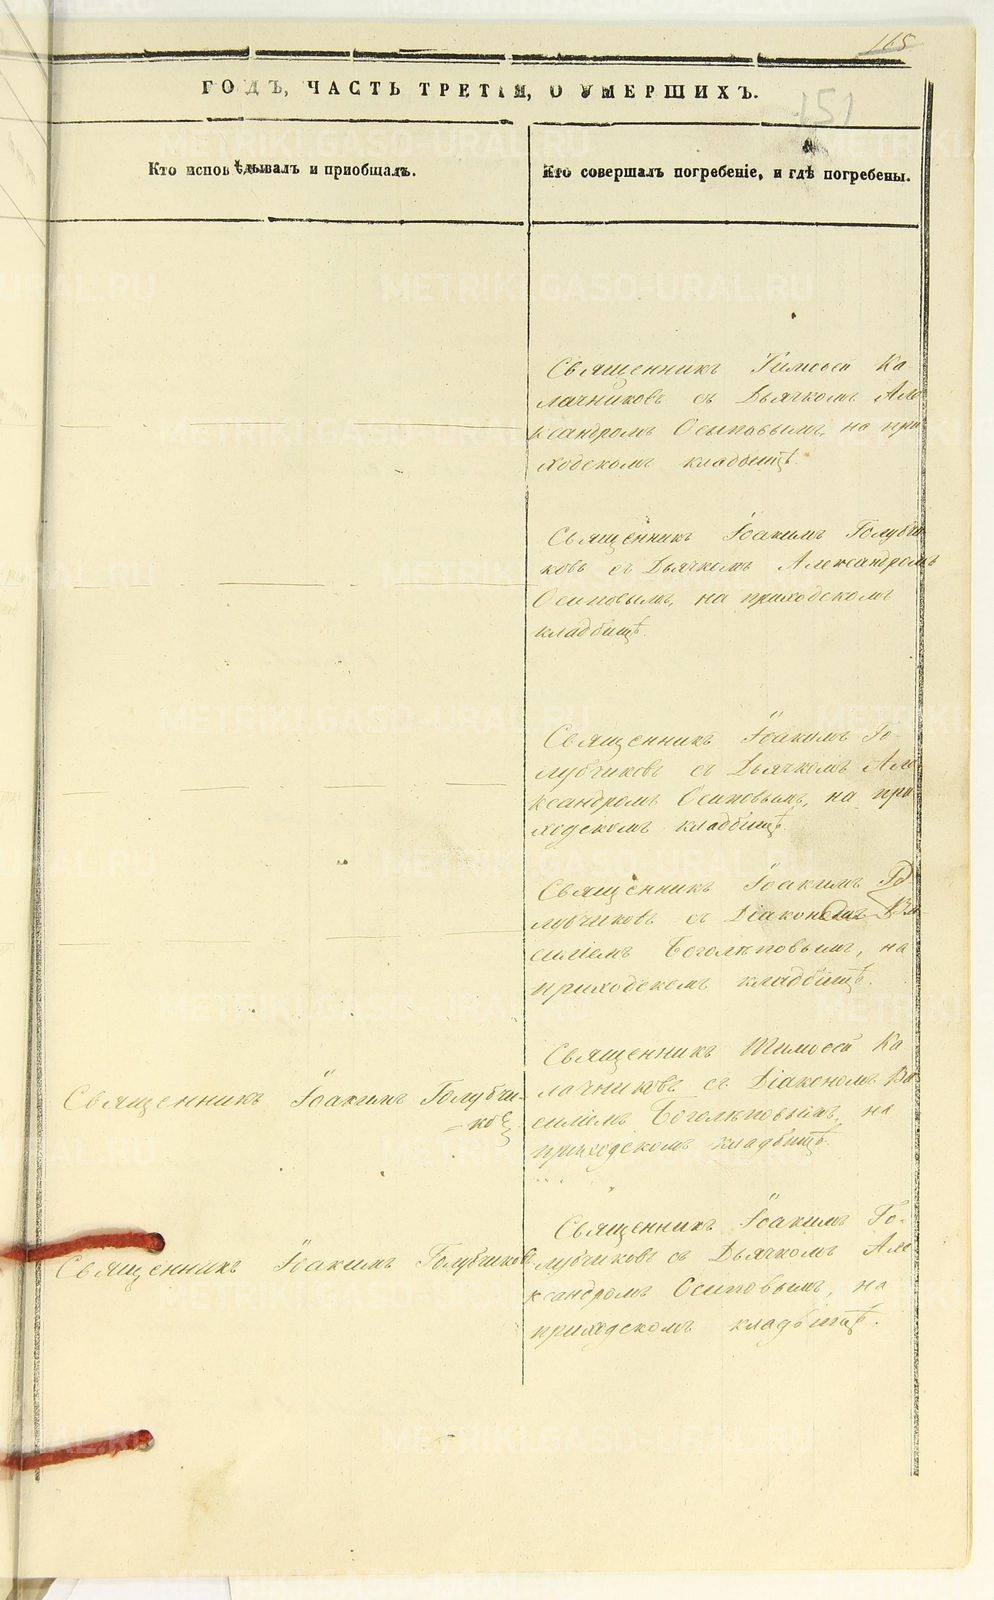 165
151
ГОДЪ, ЧАСТЬ ТРЕТІЯ, О УМЕРШИХЪ.
Кто исповѣдывалъ и приобщалъ.
Кто совершалъ погребеніе, и гдѣ погребены.
Священникъ Тимоѳей Ка
лачниковъ съ Дьячкомъ Але
ксандромъ Осиповымъ, на при
ходскомъ кладбищѣ.
Священникъ Іоакимъ Голубчи
ковъ съ Дьячкомъ Александромъ
Осиповымъ, на приходскомъ
кладбищѣ.
Священникъ Іоакимъ Го-
лубчиковъ съ Дьячкомъ Але
ксандромъ Осиповымъ, на при-
ходскомъ кладбищѣ.
Священникъ Іоакимъ Го
лубчиковъ съ Діакономъ Ва-
силіемъ Боголѣповымъ, на
приходскомъ кладбищѣ.
Священникъ Іоакимъ Голубчи-
ковъ
Священникъ Тимоѳей Ка
лачниковъ съ Діакономъ Ва
силіемъ Боголѣповымъ, на
приходскомъ кладбищѣ.
Священникъ Іоакимъ Голубчиковъ
Священникъ Іоакимъ Го-
лубчиковъ съ Дьячкомъ Але
ксандромъ Осиповымъ, на
приходскомъ кладбищѣ.
METRIKI.GASO-URAL.RU